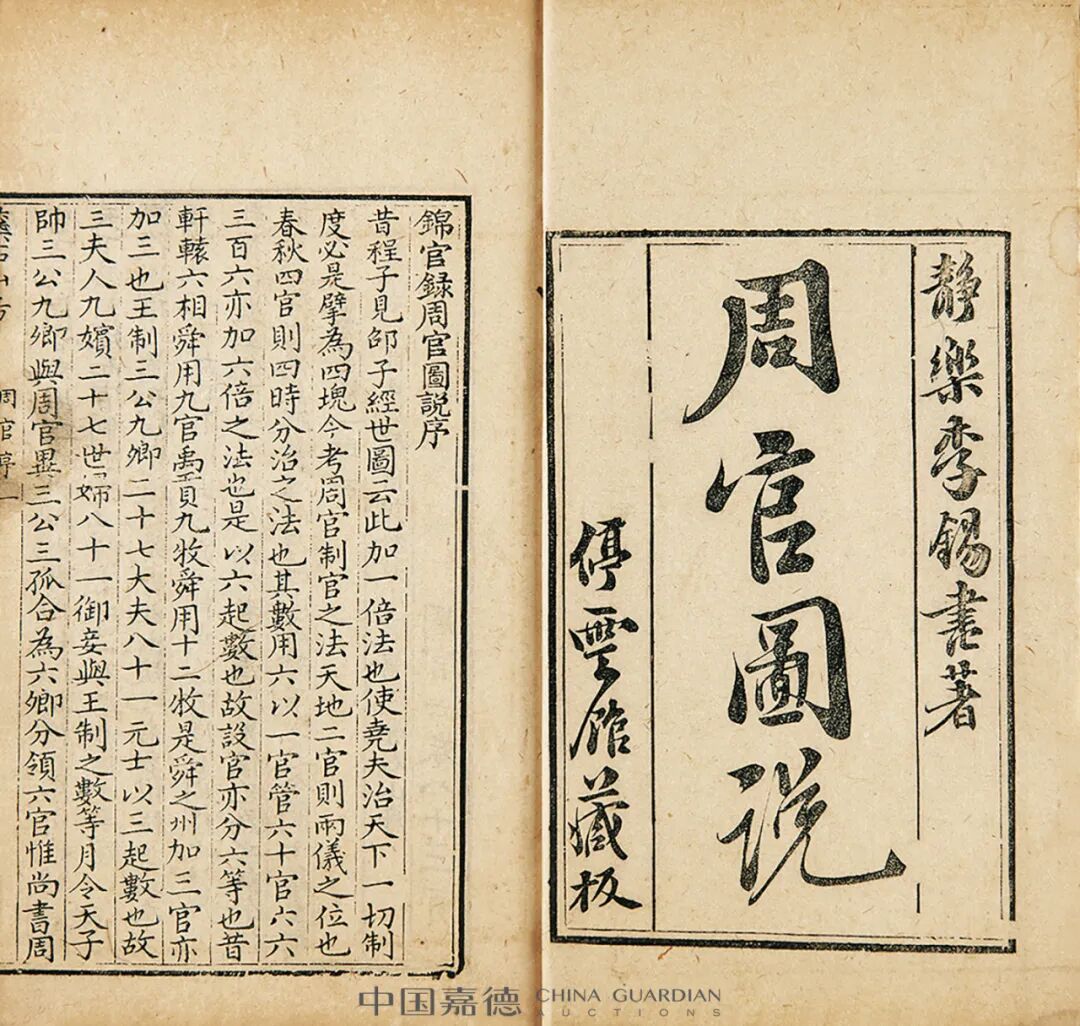 靜樂李錫書著
周官圖說
停雲館藏板
錦官録周官圖說序
昔程子見邵子經世圖云此加一倍法也使堯夫治天下一切制
度必是擘為四塊今考周官制官之法天地二官則兩儀之位也
春秋四官則四時分治之法也其數用六以一官管六十官六六
三百六亦加六倍之法也是以六起數也故設官亦分六等也昔
軒轅六相舜用九官禹貢九牧舜用十二牧是舜之州加三官亦
加三也王制三公九卿二十七大夫八十一元士以三起數也故
三夫人九嬪二十七世婦八十一御妾與王制之數等月令天子
帥三公九卿與周官異三公三孤合為六卿分領六官惟尚書周
周官序一
中国嘉德 CHINA GUARDIAN
AUCTIONS